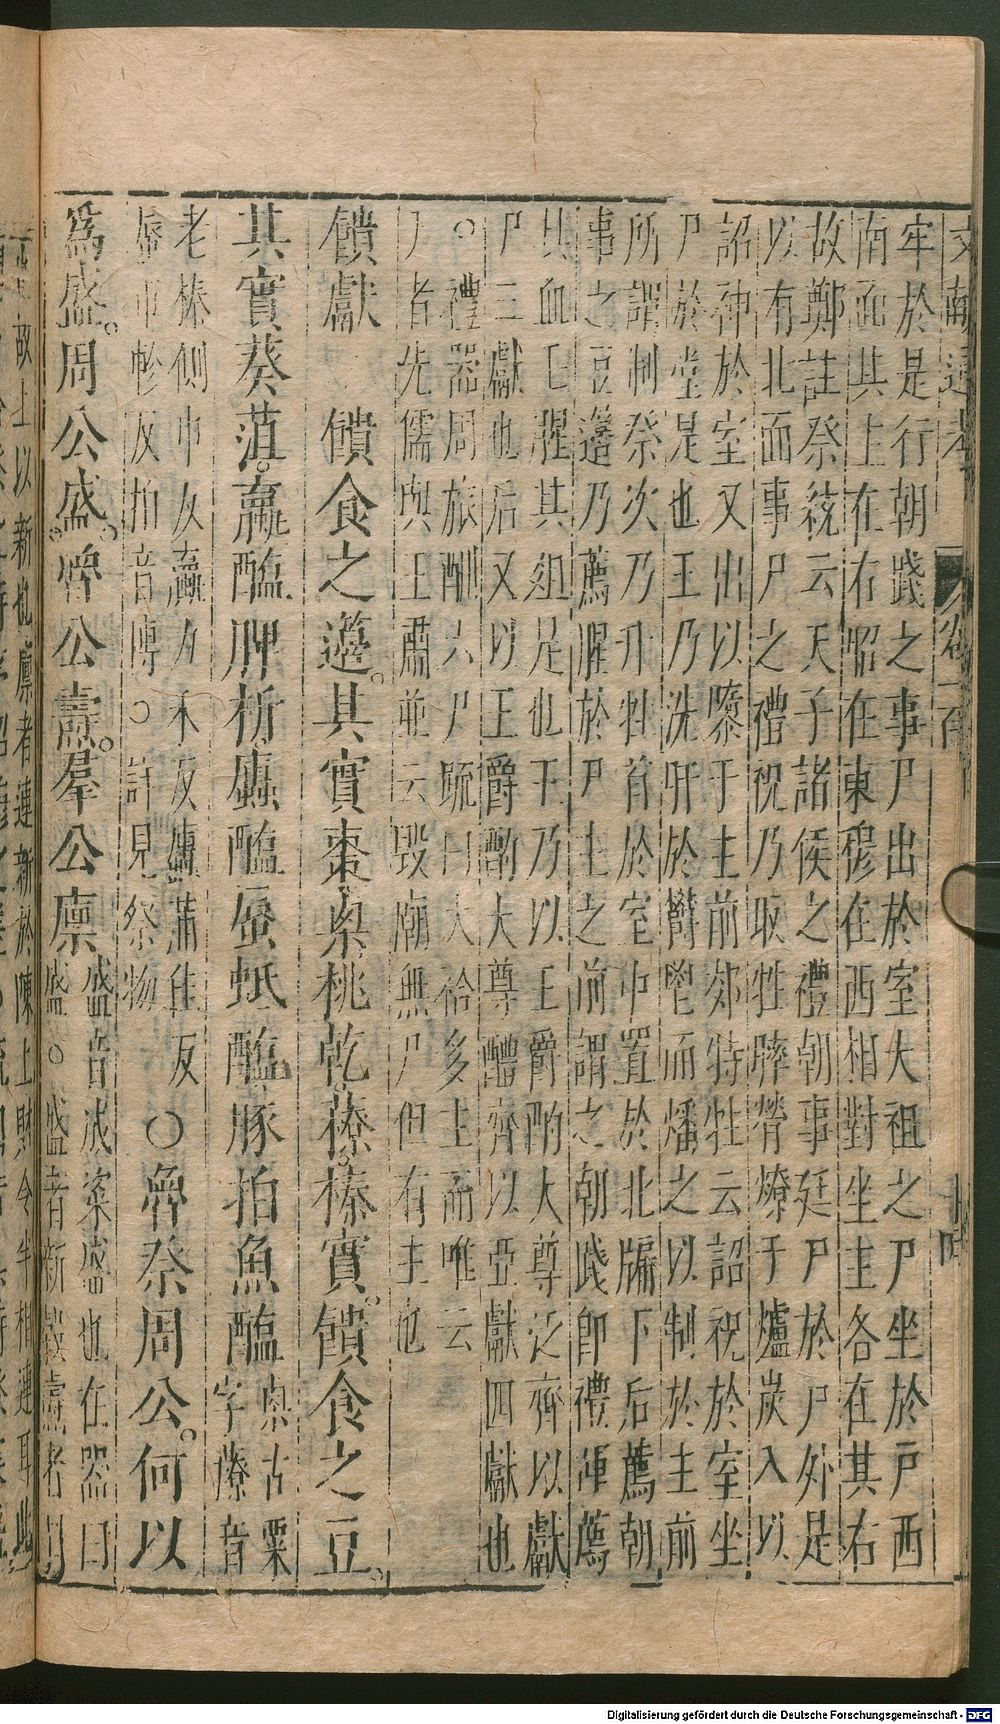 文廟通考 卷一 十四
牢於是行朝踐之事尸出於室大祖之尸坐於戶西
南面其主在右昭在東穆在西相對坐主各在其右
故鄭註祭統云天子諸侯之禮朝事延尸於戶外是
以有北面事尸之禮祝乃取牲膟膋燎于爐炭入以
詔神於室又出以隳于主前郊特牲云詔祝於室坐
尸於堂是也王乃洗肝於鬱鬯而燔之以制於主前
所謂制祭次乃升牲首於室中置於北牖下后薦朝
事之豆籩乃薦腥於尸主之前謂之朝踐即禮運薦
其血毛腥其俎是也王乃以玉爵酌大尊泛齊以獻
尸三獻也后又以玉爵酌大尊醴齊以亞獻四獻也
○禮器周旅酬六尸疏曰大祫多主而唯云
尸者先儒與王肅並云毀廟無尸但有主也
饋獻 饋食之籩其實棗㮚桃乾䕩榛實饋食之豆
其實葵菹蠃醢脾析蠯醢蜃蚳醢豚拍魚醢㮚古栗
字䕩音
老榛側巾反蠃力禾反蠯蒲佳反
蜃市軫反拍音博○詳見祭物
○魯祭周公何以
為盛周公盛魯公燾羣公廩盛音成粢盛也在器曰
盛○盛者新穀燾者冒
也故上以新也廩者連新於陳上財令半相連耳此
Digitalisierung gefördert durch die Deutsche Forschungsgemeinschaft - DFG